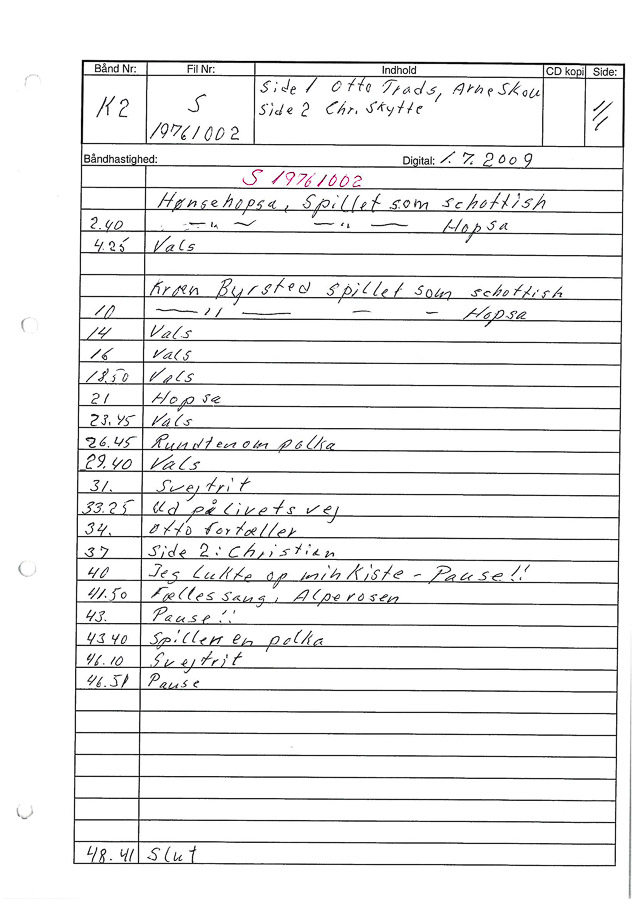 Bånd Nr: Fil Nr: Indhold CD kopi Side:
K2 S 19761002 Side 1 Otto Trads, Arne Skou 1/1
Side 2 Chr. Skytte
Båndhastighed: Digital: 1.7.2009
S 19761002
Hønsehopsa, Spillet som schottish
2.40 — " — — " — Hopsa
4.25 Vals
Kræn Byrsted spillet som schottish
10 — " — — — Hopsa
14 Vals
16 Vals
18.50 Vals
21 Hopsa
23.45 Vals
26.45 Rundtenom polka
29.40 Vals
31. Svejtrit
33.25 Ud på livets vej
34. Otto fortæller
37 Side 2: Christian
40 Jeg lukte op min Kiste - Pause!!
41.50 Fælles sang, Alperosen
43. Pause!!
43 40 Spillen en polka
46.10 Svejtrit
46.51 Pause
48.41 Slut